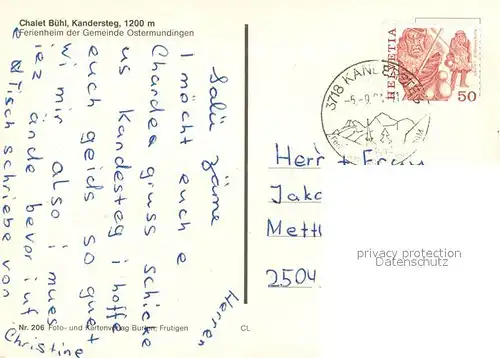 Chalet Bühl, Kandersteg, 1200 m
Ferienheim der Gemeinde Ostermundingen
Salü zäme
I möcht euch e
Chardea gruss schicke
us Kandesteg i hoffe
euch geids so guet
wi mir also i mues
iez ände bevor i uf
Tisch schriebe von
Christine
Herren
Nr. 206 Foto- und Kartenverlag Burren, Frutigen
CL
HELVETIA
50
3718 KANDERSTEG
-5.-9.
Herr + Frau
Jako
Mettl
2504
privacy protection
Datenschutz